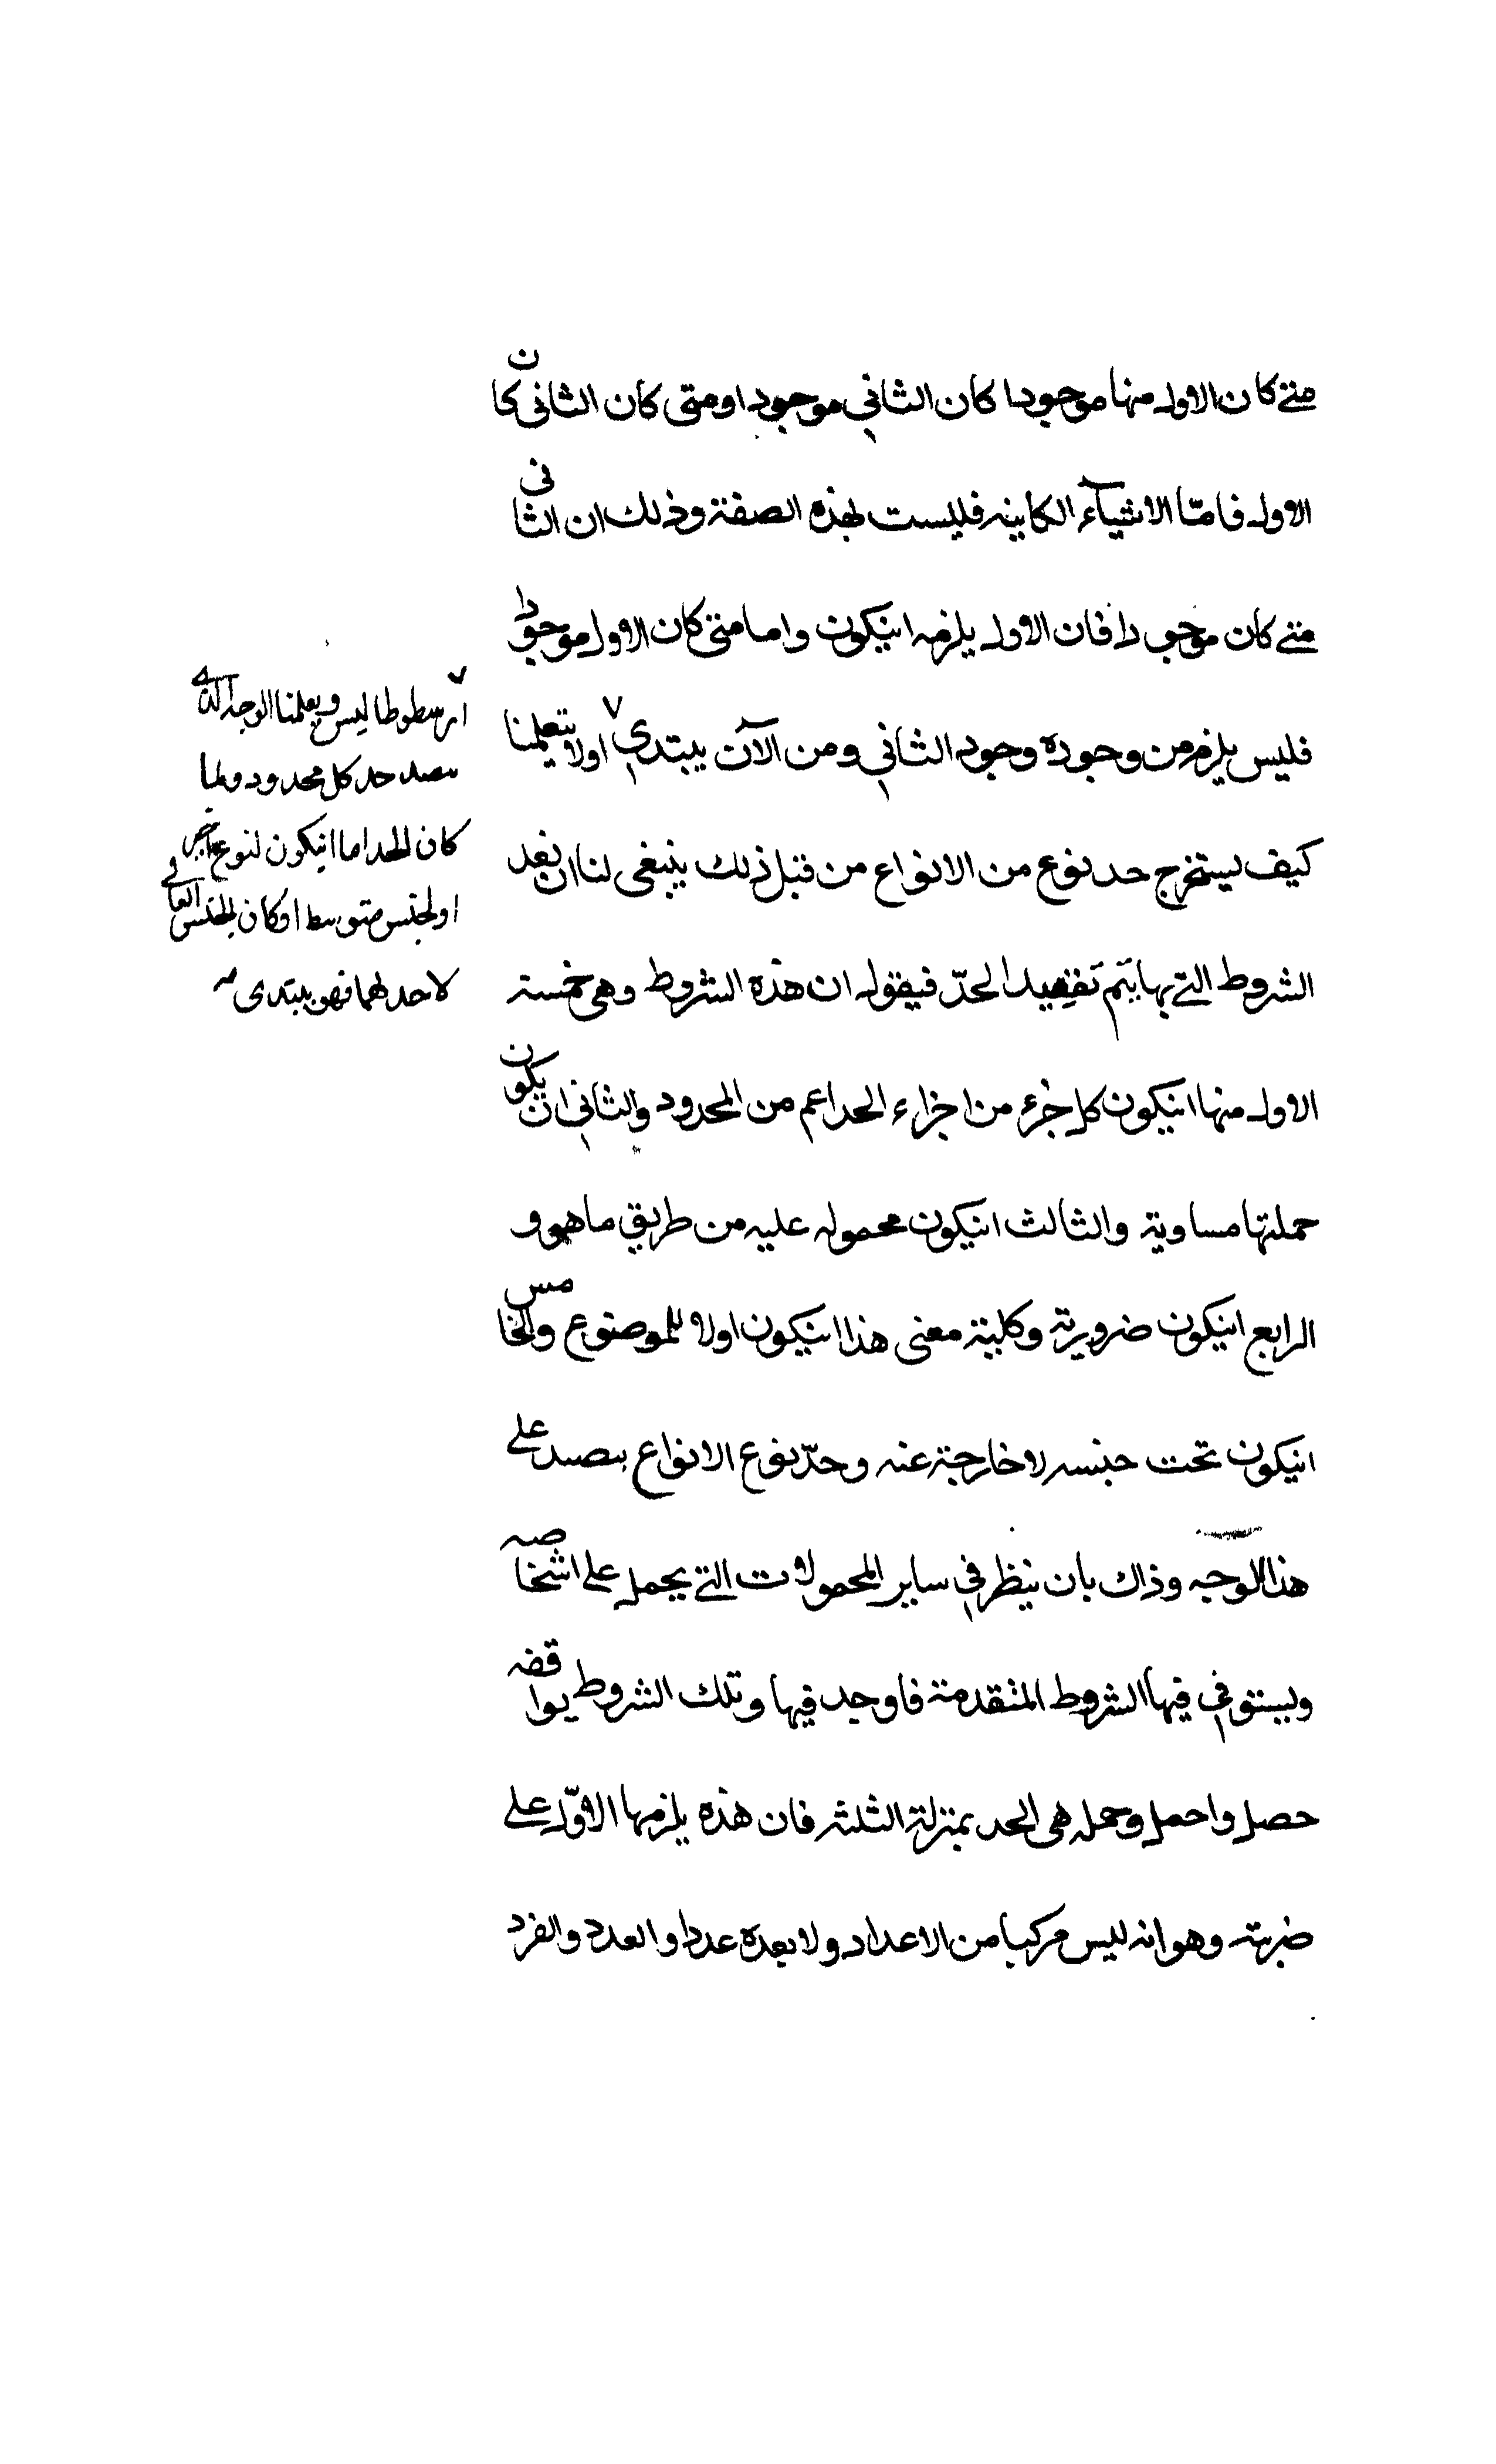 متى كان الاول منها موجودا كان الثاني موجودا ومتى كان الثاني كان
الاول فامّا الاشيآء الكاينه فليست بهذه الصفة وذلك ان الثانى
متى كان موجودا فان الاول يلزمه انيكون واما متى كان الاول موجودا
فليس يلزم من وجوده وجود الثاني ومن الآن يبتدي اولا بتعليمنا
كيف يستخرج حد نوع من الانواع من قبل ذلك ينبغى لنا ان نعد
الشروط التى بها يتم تفصيل الحدّ فيقول ان هذه الشروط وهى خمسة
الاول منها انيكون كل جزء من اجزاء الحد اعم من المحدود والثاني ان يكون
جملتها مساوية والثالث انيكون محموله عليه من طريق ما هو و
الرابع انيكون ضرورية وكلية معنى هذا انيكون اولا للموضوع والخامس
انيكون تحت جنسه لا خارجة عنه وحدّ نوع الانواع يتصيد على
هذا الوجه وذاك بان ينظر في ساير المحمولات التى يحمل على اشخاصه
ويستوفي فيها الشروط المتقدمة فما وجد فيها وتلك الشروط يوافقه
حصل واحمل وجمله هى الحد بمنزلة الثلثه فان هذه يلزمها الاوّل على
ضربته وهو انه ليس مركبا من الاعداد ولا بعده عددا والعدد والفرد
ارسطوطاليس ويعلمنا الوجه الذى
يتصيد حد كل محدود ولما
كان الحد اما انيكون لنوع اخير
او لجنس متوسط او كان الجنس العالى
لا حد لهما فهو يبتدى